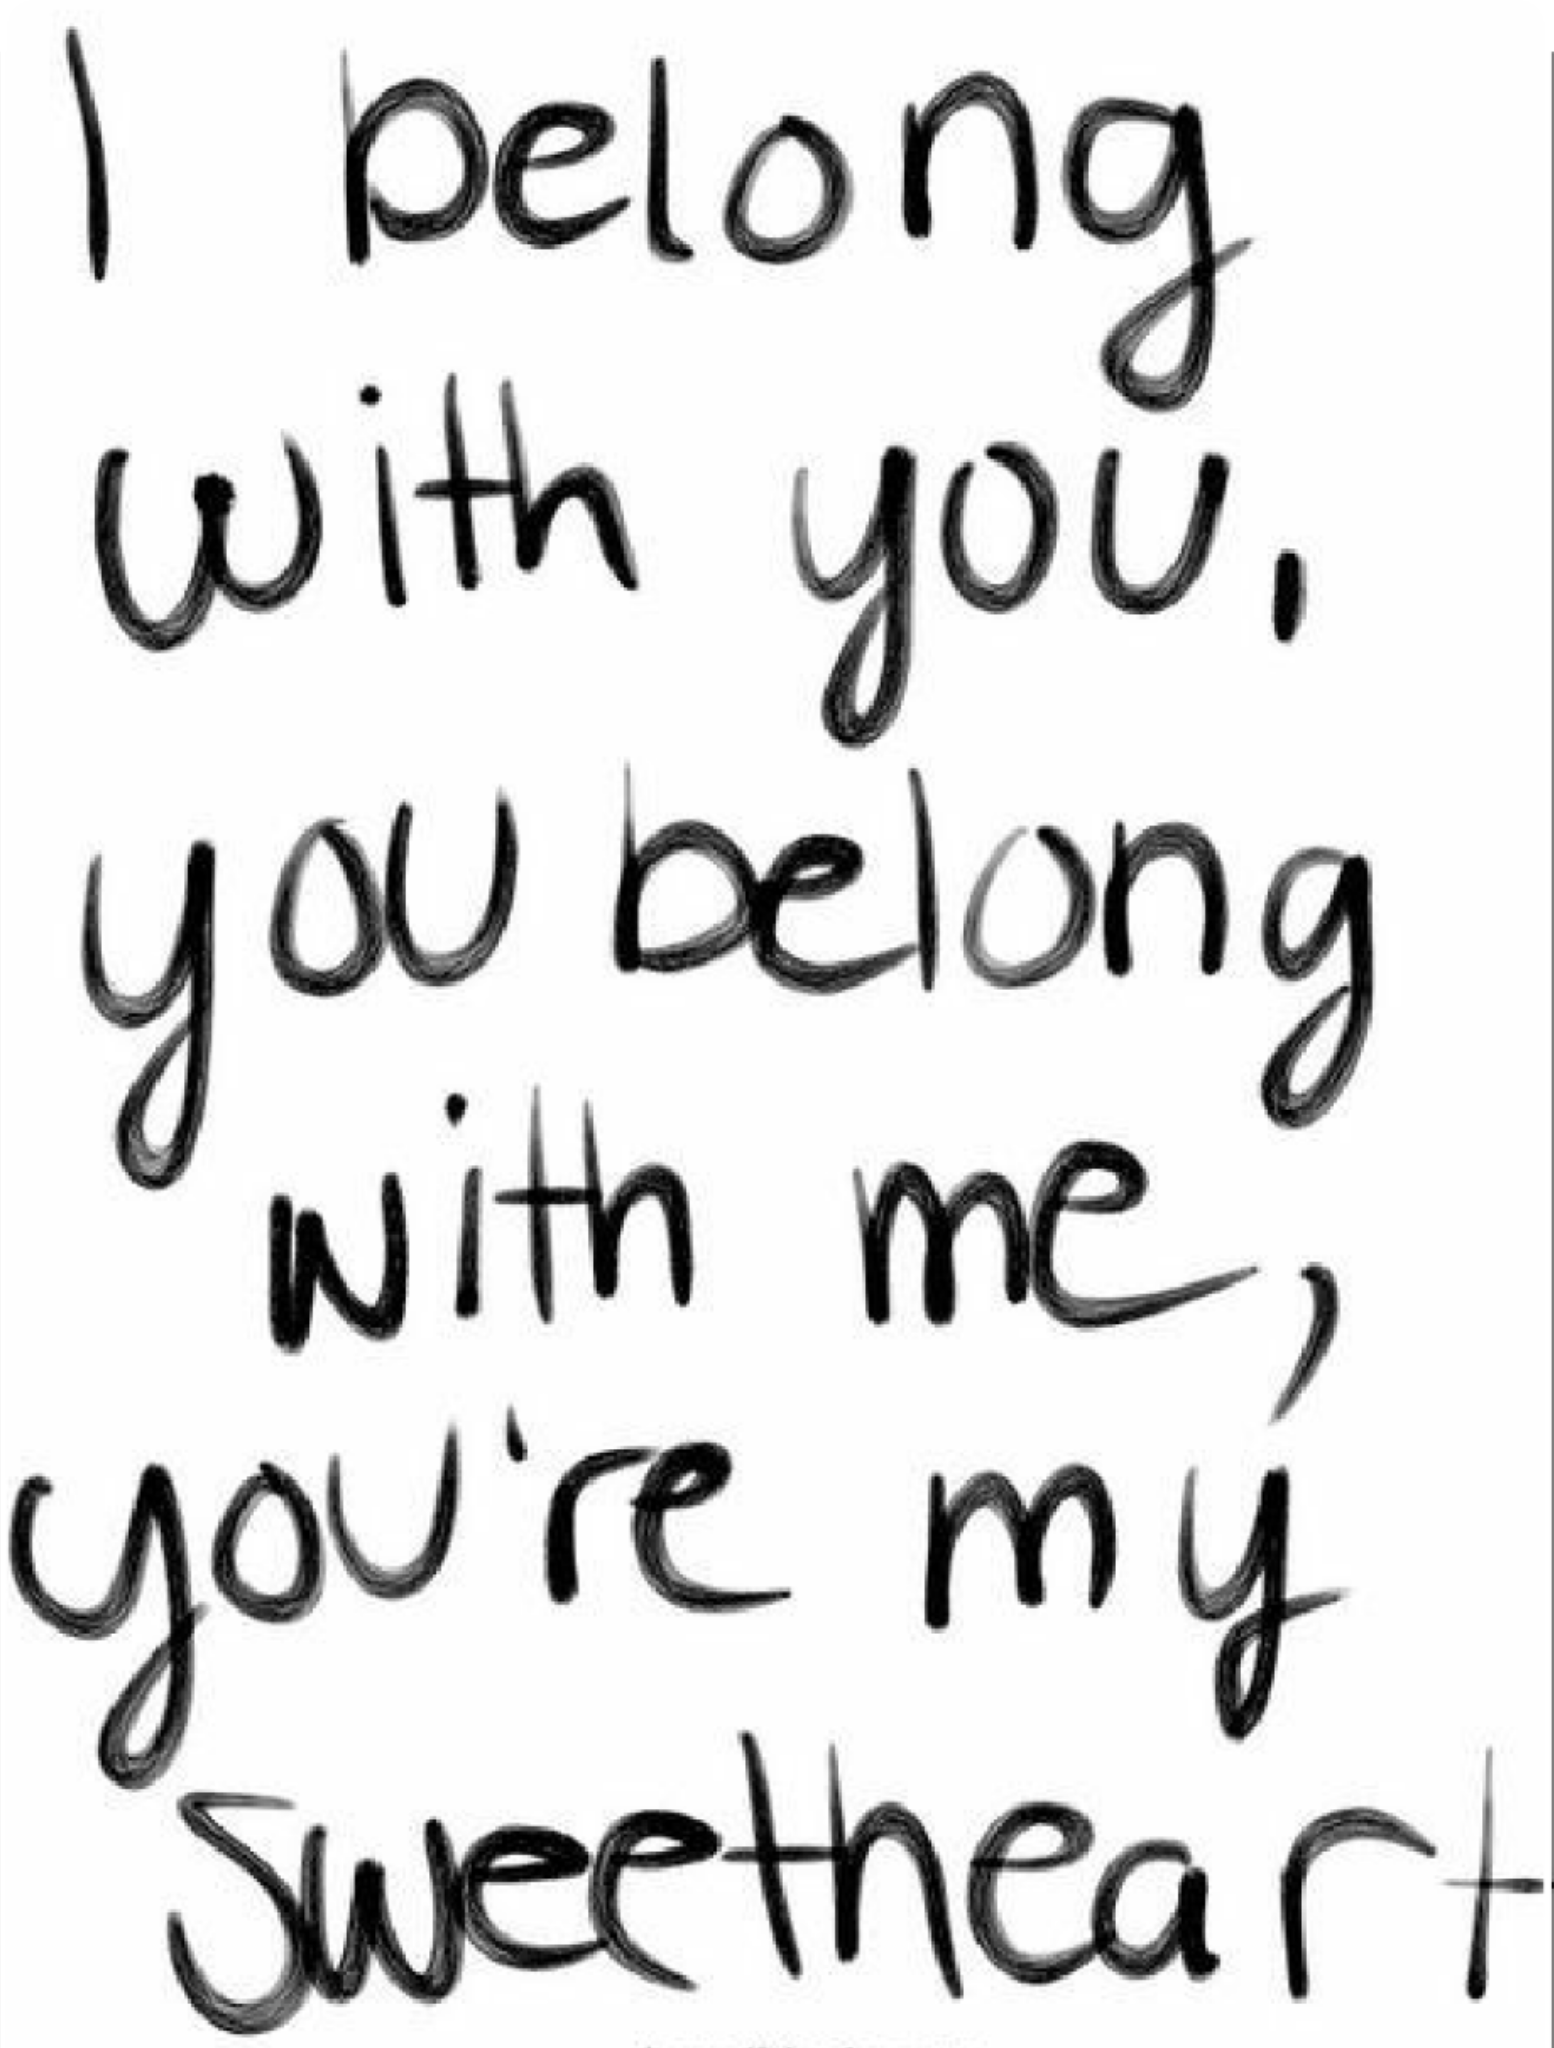 I belong
with you,
you belong
with me,
you're my
sweetheart